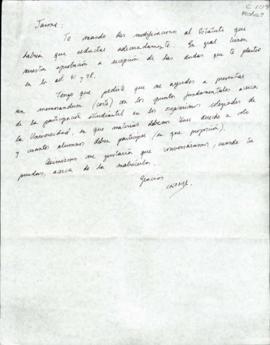 Jaime:
Te mando las modificaciones al Estatuto que
habría que redactar adecuadamente. En gral tienen
nuestra aprobación a excepción de las dudas que te planteo
en lo al 61 y 78.
Tengo que pedirte que me ayudes a presentar
un memorandum (corto) con los puntos fundamentales acerca
de la participación estudiantil en los organismos colegiados de
la Universidad, en que materias deberían tener derecho a voto
y cuántos alumnos deben participar (en que proporción).
Asimismo me gustaría que conversáramos, cuando tu
puedas, acerca de la matrícula.
Gracias